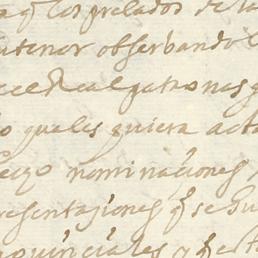 a q los prelados de la
ntenor obserbando
el Real patronasg
o quales quiera acto
nominaciones
resentaziones q se hu
ouinçiales y q esto